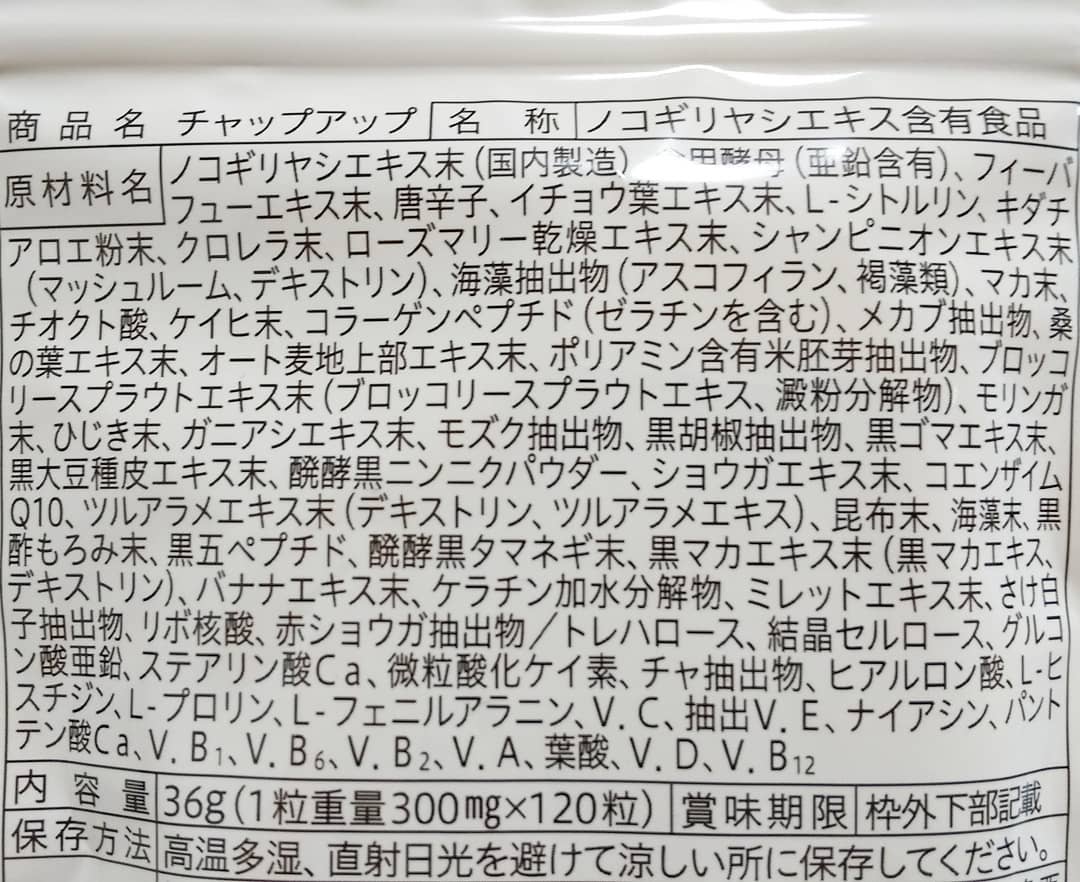 商品名 チャップアップ 名称 ノコギリヤシエキス含有食品
原材料名 ノコギリヤシエキス末(国内製造)、食用酵母(亜鉛含有)、フィーバ
フューエキス末、唐辛子、イチョウ葉エキス末、L-シトルリン、キダチ
アロエ粉末、クロレラ末、ローズマリー乾燥エキス末、シャンピニオンエキス末
(マッシュルーム、デキストリン)、海藻抽出物(アスコフィラン、褐藻類)、マカ末、
チオクト酸、ケイヒ末、コラーゲンペプチド(ゼラチンを含む)、メカブ抽出物、桑
の葉エキス末、オート麦地上部エキス末、ポリアミン含有米胚芽抽出物、ブロッコ
リースプラウトエキス末(ブロッコリースプラウトエキス、澱粉分解物)、モリンガ
末、ひじき末、ガニアシエキス末、モズク抽出物、黒胡椒抽出物、黒ゴマエキス末、
黒大豆種皮エキス末、醗酵黒ニンニクパウダー、ショウガエキス末、コエンザイム
Q10、ツルアラメエキス末(デキストリン、ツルアラメエキス)、昆布末、海藻末、黒
酢もろみ末、黒五ペプチド、醗酵黒タマネギ末、黒マカエキス末(黒マカエキス、
デキストリン)、バナナエキス末、ケラチン加水分解物、ミレットエキス末、さけ白
子抽出物、リボ核酸、赤ショウガ抽出物/トレハロース、結晶セルロース、グルコ
ン酸亜鉛、ステアリン酸Ca、微粒酸化ケイ素、チャ抽出物、ヒアルロン酸、L-ヒ
スチジン、L-プロリン、L-フェニルアラニン、V.C、抽出V.E、ナイアシン、パント
テン酸Ca、V.B1、V.B6、V.B2、V.A、葉酸、V.D、V.B12
内容量 36g(1粒重量300mg×120粒) 賞味期限 枠外下部記載
保存方法 高温多湿、直射日光を避けて涼しい所に保存してください。